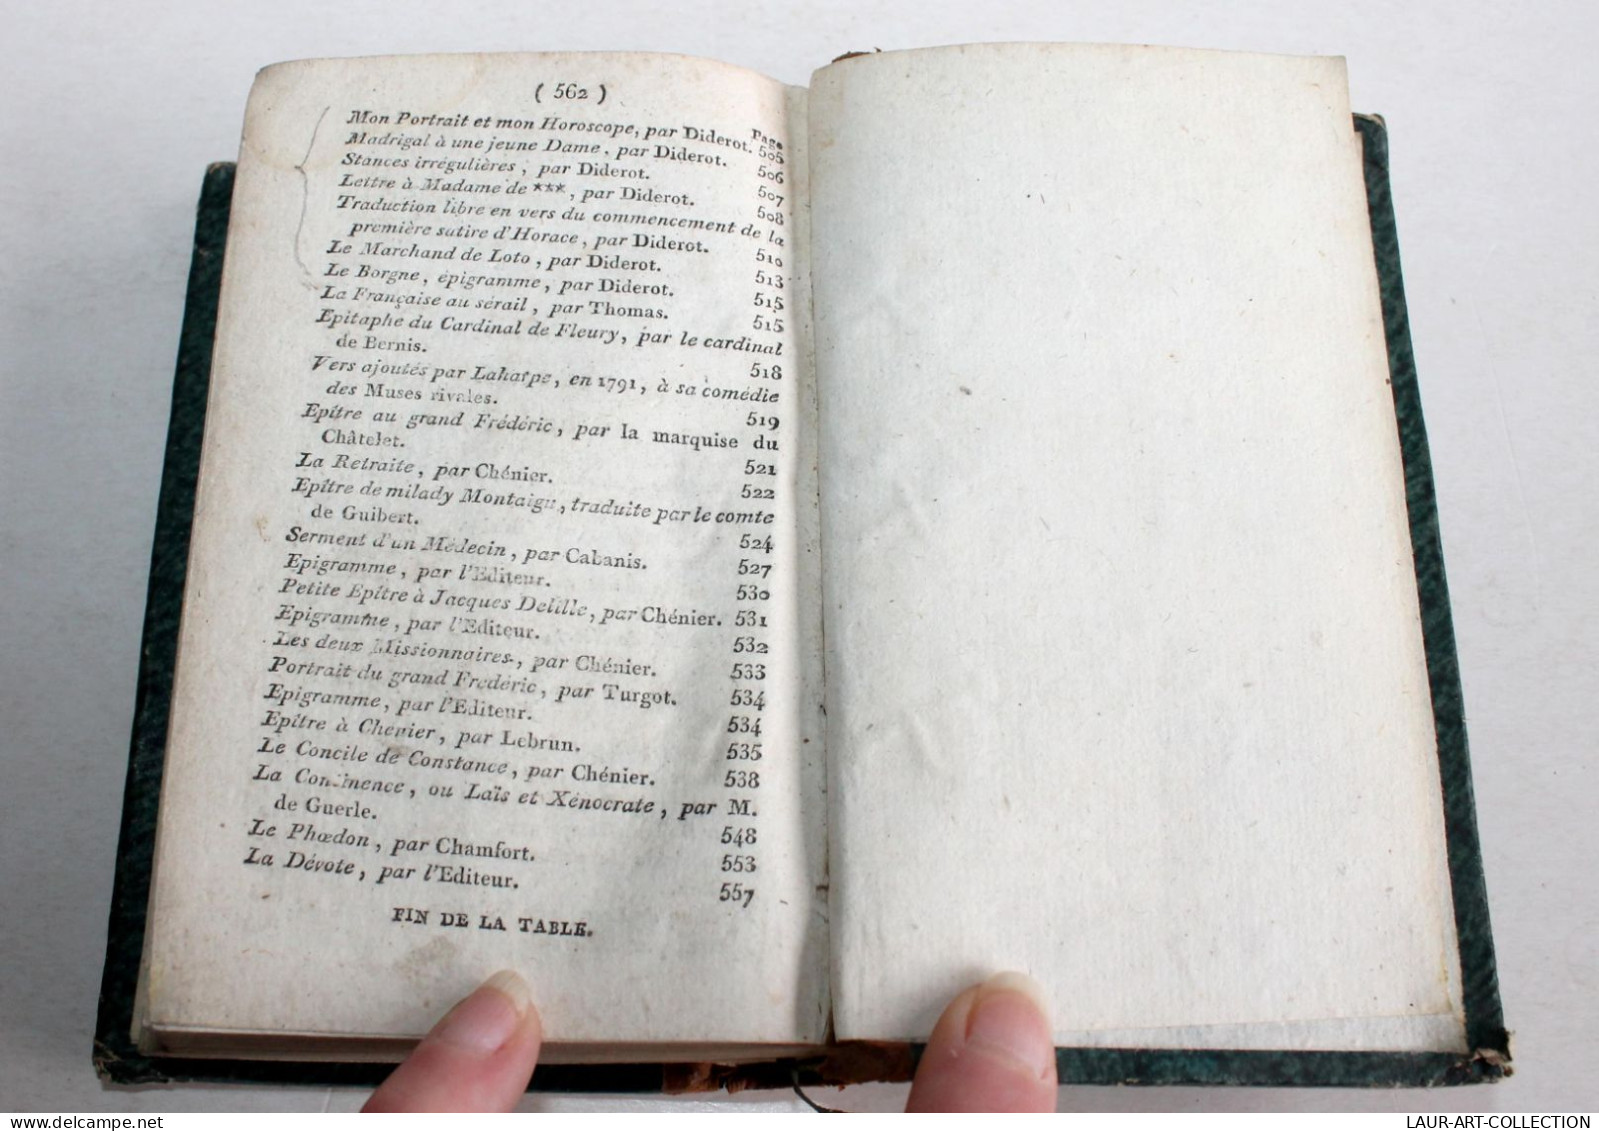 ( 562 )
Page
Mon Portrait et mon Horoscope, par Diderot. 505
Madrigal à une jeune Dame, par Diderot. 506
Stances irrégulières, par Diderot. 507
Lettre à Madame de ***, par Diderot. 508
Traduction libre en vers du commencement de la
première satire d'Horace, par Diderot. 510
Le Marchand de Loto, par Diderot. 513
Le Borgne, épigramme, par Diderot. 515
La Française au sérail, par Thomas. 515
Epitaphe du Cardinal de Fleury, par le cardinal
de Bernis. 518
Vers ajoutés par Laharpe, en 1791, à sa comédie
des Muses rivales. 519
Epître au grand Frédéric, par la marquise du
Châtelet. 521
La Retraite, par Chénier. 522
Epître de milady Montaigu, traduite par le comte
de Guibert. 524
Serment d'un Médecin, par Cabanis. 527
Epigramme, par l'Editeur. 530
Petite Epître à Jacques Delille, par Chénier. 531
Epigramme, par l'Editeur. 532
Les deux Missionnaires, par Chénier. 533
Portrait du grand Frédéric, par Turgot. 534
Epigramme, par l'Editeur. 534
Epître à Chénier, par Lebrun. 535
Le Concile de Constance, par Chénier. 538
La Continence, ou Laïs et Xénocrate, par M.
de Guerle. 548
Le Phœdon, par Chamfort. 553
La Dévote, par l'Editeur. 557
FIN DE LA TABLE.
www.delcampe.net
LAUR-ART-COLLECTION